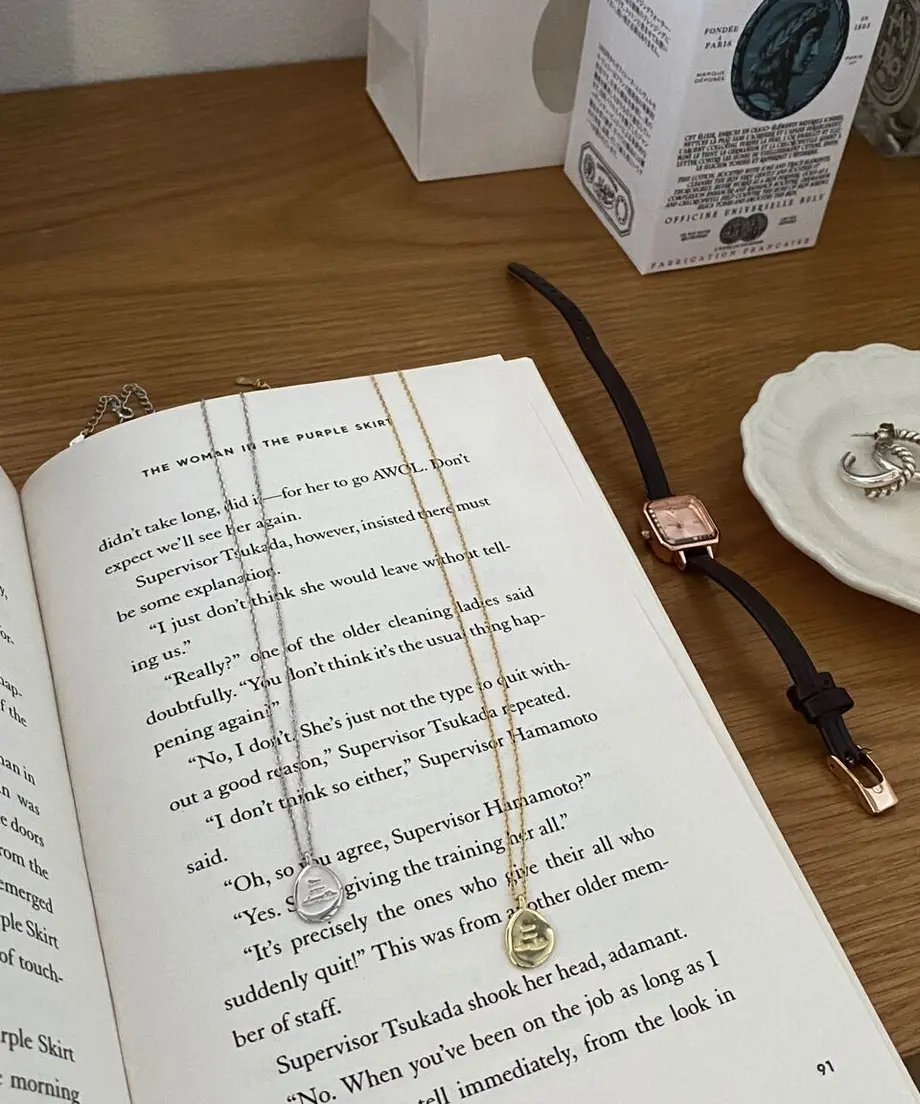 FONDÉE
À
PARIS
EN
1803
MARQUE
DÉPOSÉE
PARIS
OFFICINE UNIVERSELLE BULY
FABRICATION FRANÇAISE
THE WOMAN IN THE PURPLE SKIRT
didn't take long, did it—for her to go AWOL. Don't
expect we'll see her again.
Supervisor Tsukada, however, insisted there must
be some explanation.
"I just don't think she would leave without tell-
ing us."
"Really?" one of the older cleaning ladies said
doubtfully. "You don't think it's the usual thing hap-
pening again?"
"No, I don't. She's just not the type to quit with-
out a good reason," Supervisor Tsukada repeated.
"I don't think so either," Supervisor Hamamoto
said.
"Oh, so you agree, Supervisor Hamamoto?"
"Yes. giving the training her all."
"It's precisely the ones who give their all who
suddenly quit!" This was from another older mem-
ber of staff.
Supervisor Tsukada shook her head, adamant.
"No. When you've been on the job as long as I
tell immediately, from the look in
91
f the
an in
was
e doors
rom the
emerged
ple Skirt
of touch-
rple Skirt
morning